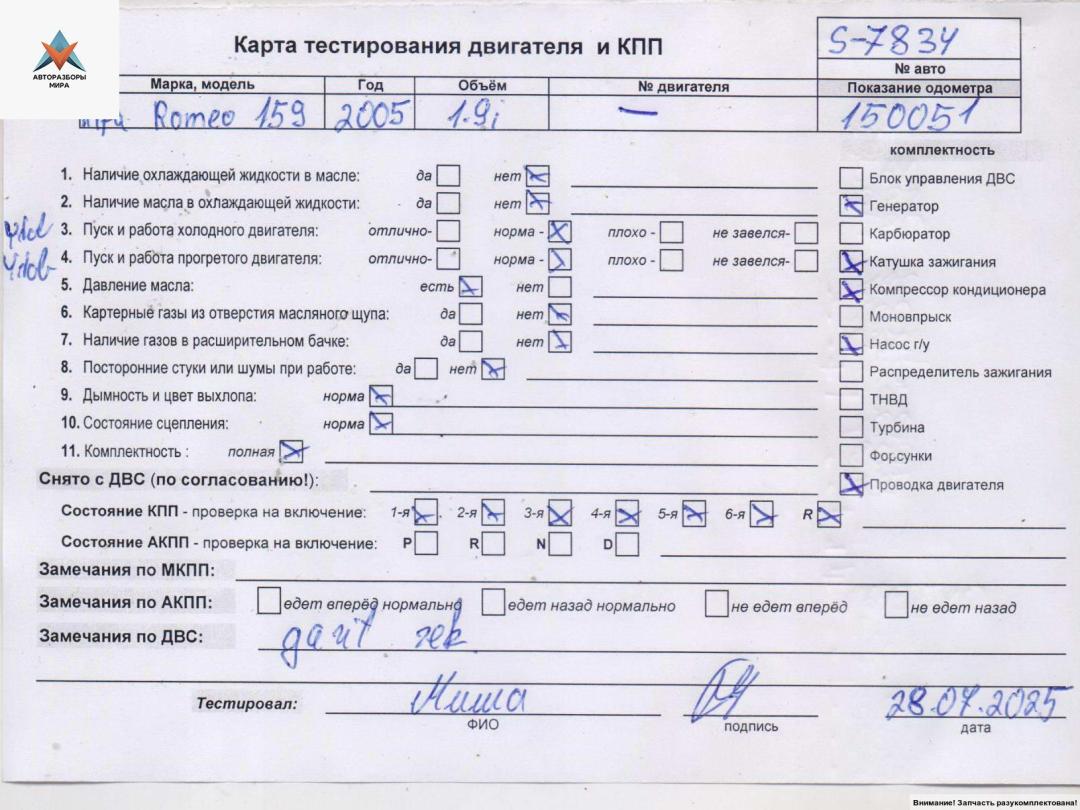 АВТОРАЗБОРЫ
МИРА
Карта тестирования двигателя и КПП
S-7834
№ авто
Марка, модель Год Объём № двигателя Показание одометра
Romeo 159 2005 1.9i — 150051
комплектность
1. Наличие охлаждающей жидкости в масле: да нет
Блок управления ДВС
2. Наличие масла в охлаждающей жидкости: да нет
Генератор
3. Пуск и работа холодного двигателя: отлично- норма - плохо - не завелся-
Карбюратор
4. Пуск и работа прогретого двигателя: отлично- норма - плохо - не завелся-
Катушка зажигания
5. Давление масла: есть нет
Компрессор кондиционера
6. Картерные газы из отверстия масляного щупа: да нет
Моновпрыск
7. Наличие газов в расширительном бачке: да нет
Насос г/у
8. Посторонние стуки или шумы при работе: да нет
Распределитель зажигания
9. Дымность и цвет выхлопа: норма
ТНВД
10. Состояние сцепления: норма
Турбина
11. Комплектность : полная
Форсунки
Снято с ДВС (по согласованию!):
Проводка двигателя
Состояние КПП - проверка на включение: 1-я 2-я 3-я 4-я 5-я 6-я R
Состояние АКПП - проверка на включение: P R N D
Замечания по МКПП:
Замечания по АКПП: едет вперёд нормально едет назад нормально не едет вперёд не едет назад
Замечания по ДВС:
Тестировал: Миша 28.07.2025
ФИО подпись дата
Внимание! Запчасть разукомплектована!